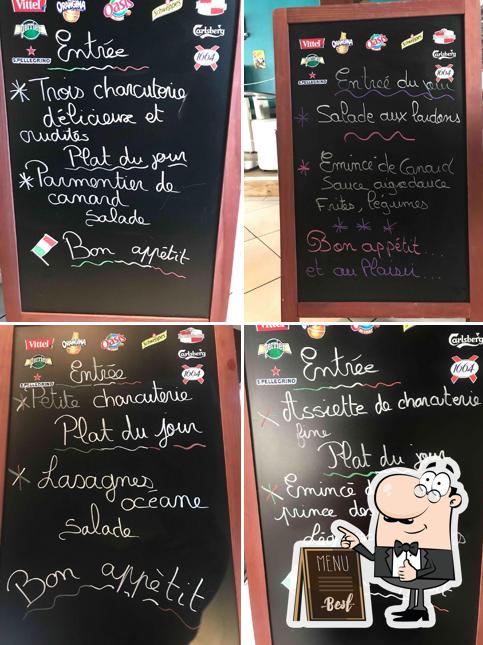 Oasis
Schweppes
Carlsberg
S.PELLEGRINO
1664
Entrée
Trois charcuterie
délicieuse et
crudités
Plat du jour
Parmentier de
canard
salade
Bon appétit
Vittel
ORANGINA
Oasis
Schweppes
Carlsberg
perrier
S.PELLEGRINO
1664
Entreé du jour
Salade aux lardons
Emincé de Canard
Sauce aigredouce
Frites, légumes
Bon appétit...
et au Plaisir...
Vittel
ORANGINA
Oasis
Schweppes
Carlsberg
perrier
S.PELLEGRINO
1664
Entrée
Petite charcuterie
Plat du jour
Lasagnes
océane
Salade
Bon appètit
Carlsberg
perrier
S.PELLEGRINO
1664
Entrée
Assiette de charcuterie
fine
Plat du jour
Emincé
prince de
MENU
Best